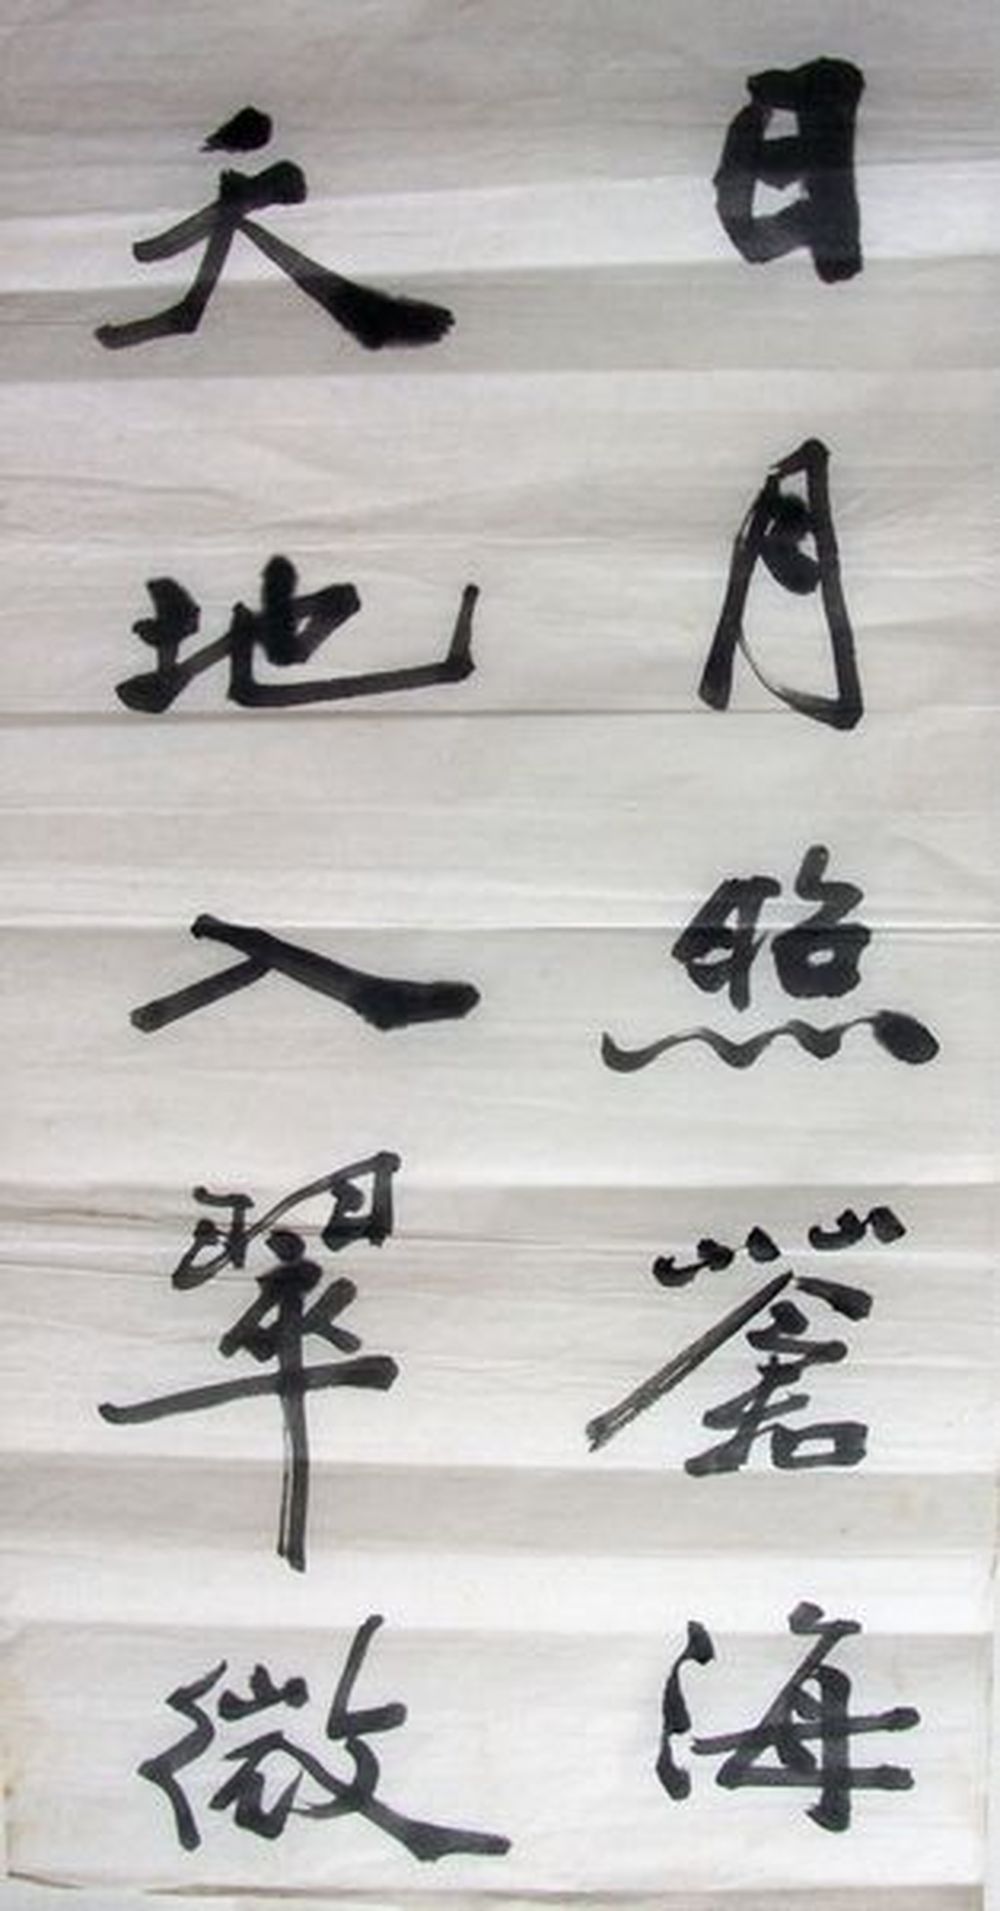 日月照蒼海
天地入翠微